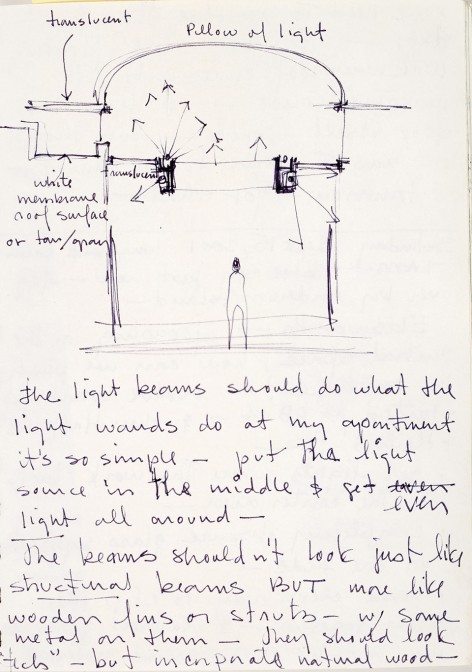 translucent
Pillow of light
translucent
white
membrane
roof surface
or tan/gray
The light beams should do what the
light wands do at my apartment
it's so simple — put the light
source in the middle & get even
even
light all around —
The beams shouldn't look just like
structural beams BUT more like
wooden fins or struts — w/ some
metal on them — They should look
" — but incorporate natural wood —